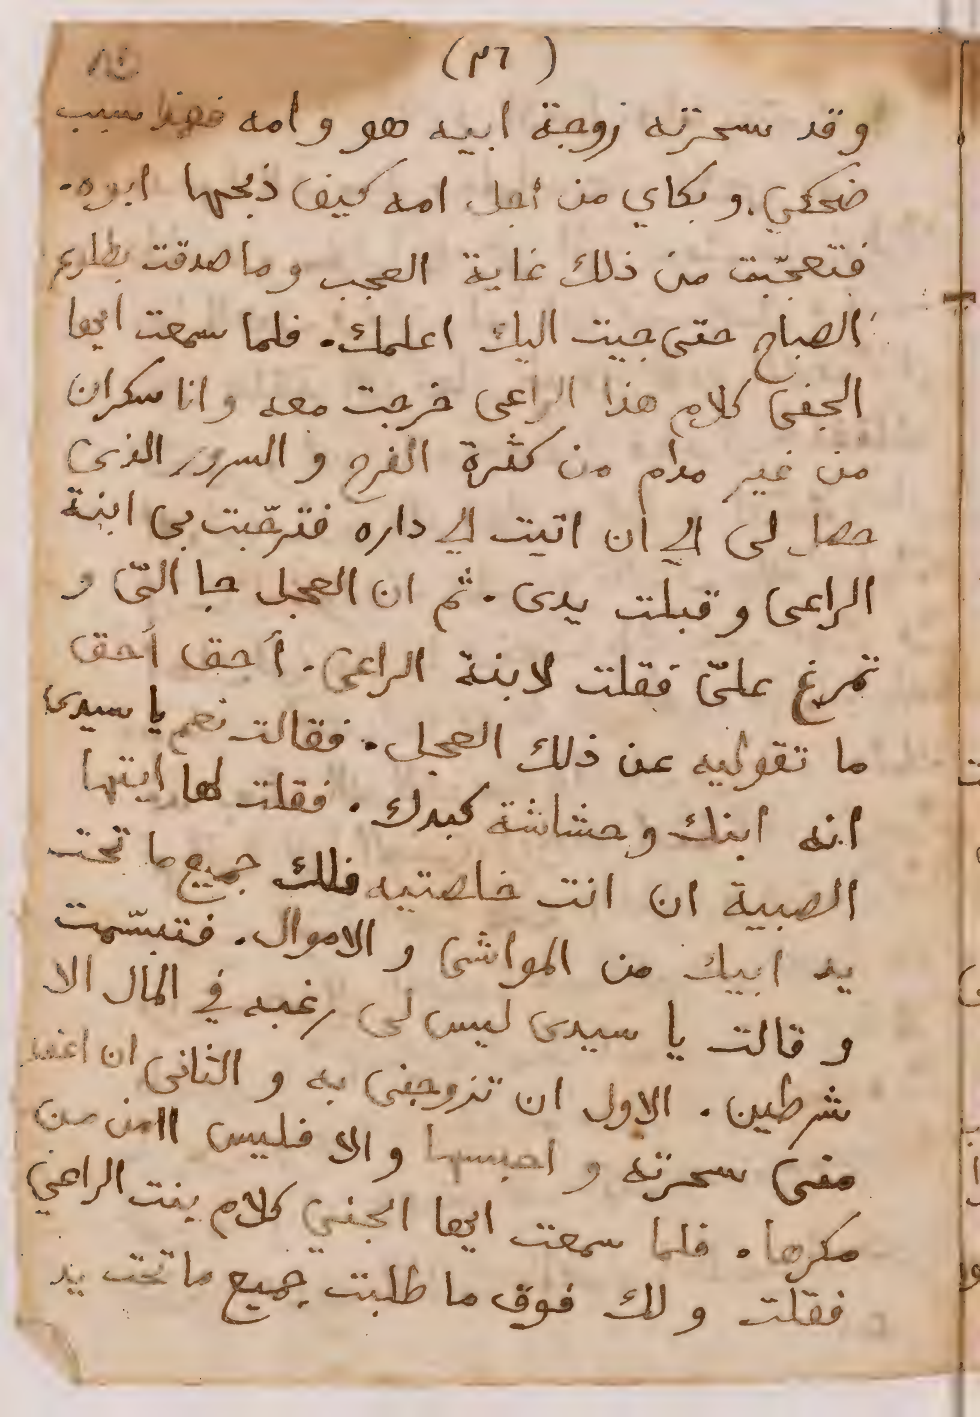 (٣٦)
وقد سحرته زوجة ابيه هو وامه فهذا سبب
ضحكي. وبكاي من أجل امه كيف ذبحها ابوه.
فتعجّبت من ذلك غاية العجب وما صدقت بطلوع
الصباح حتى جيت اليك اعلمك. فلما سمعت ايها
الجنى كلام هذا الراعى خرجت معه وانا سكران
من غير مدام من كثرة الفرح و السرور الذى
حصل لى الي ان اتيت الي داره فترحّبت بى ابنة
الراعى و قبلت يدى. ثم ان العجل جا اليّ و
تمرغ عليّ فقلت لابنة الراعى. أحق أحق
ما تقوليه عن ذلك العجل. فقالت نعم يا سيدى
انه ابنك وحشاشة كبدك. فقلت لها ايتها
الصبية ان انت خلصتيه فلك جميع ما تحت
يد ابيك من المواشى و الاموال. فتبسّمت
و قالت يا سيدى ليس لى رغبه في المال الا
بشرطين. الاول ان تزوجنى به و الثانى ان
منى سحرته و احبسها و الا فليس اامن من
مكرها. فلما سمعت ايها الجني كلام بنت الراعي
فقلت ولك فوق ما طلبت جميع ما تحت يد